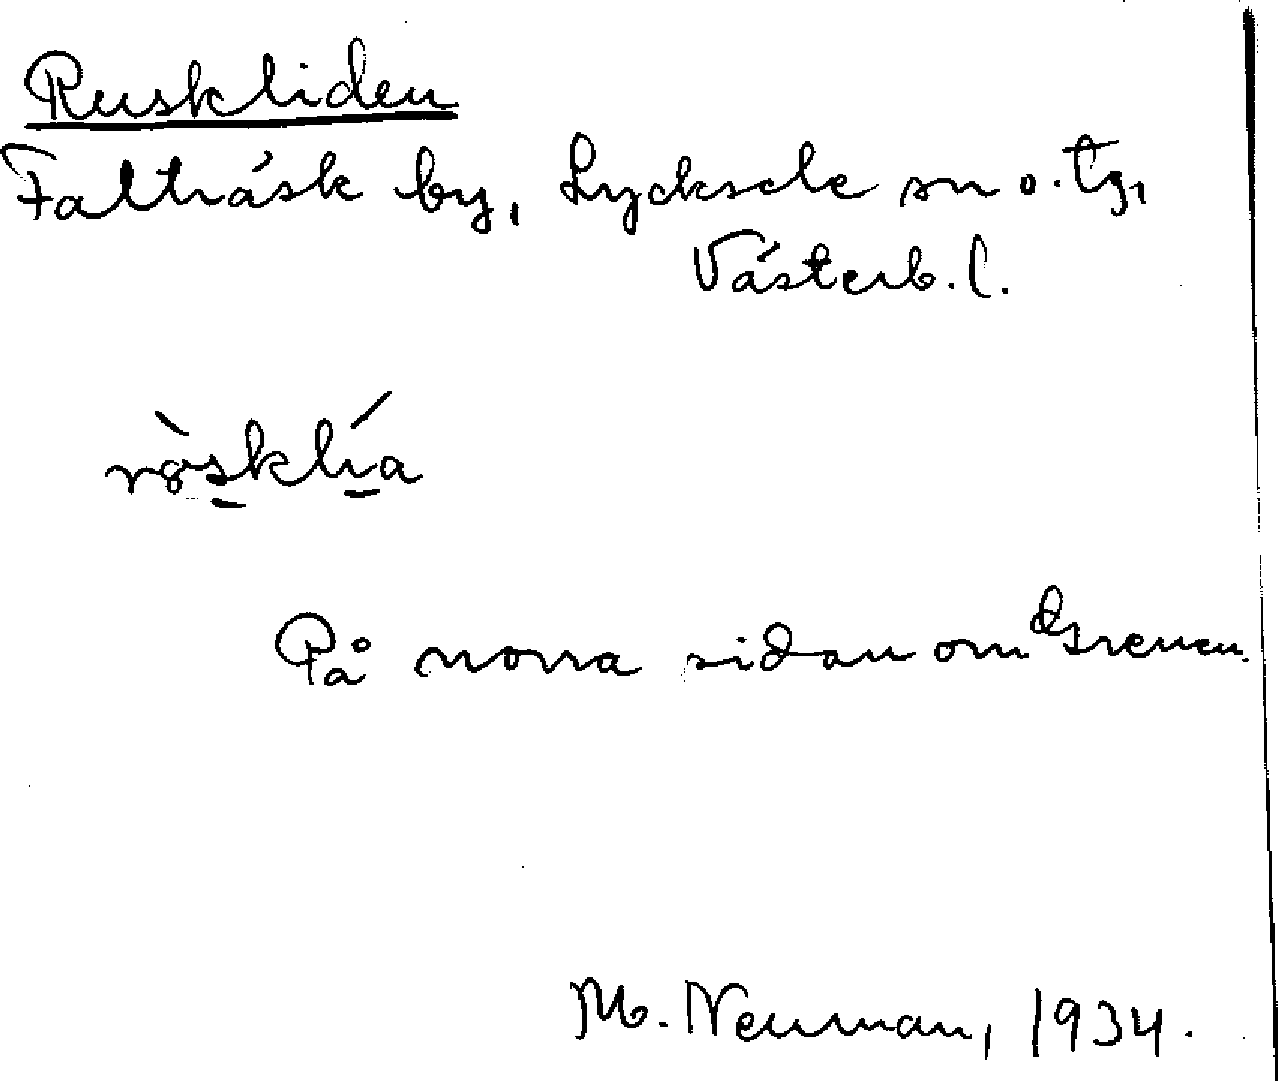 Ruskliden
Falträsk by, Lycksele sn o. tg,
Västerb. l.
ròsklía
På norra sidan om Grenen.
M. Neuman, 1934.